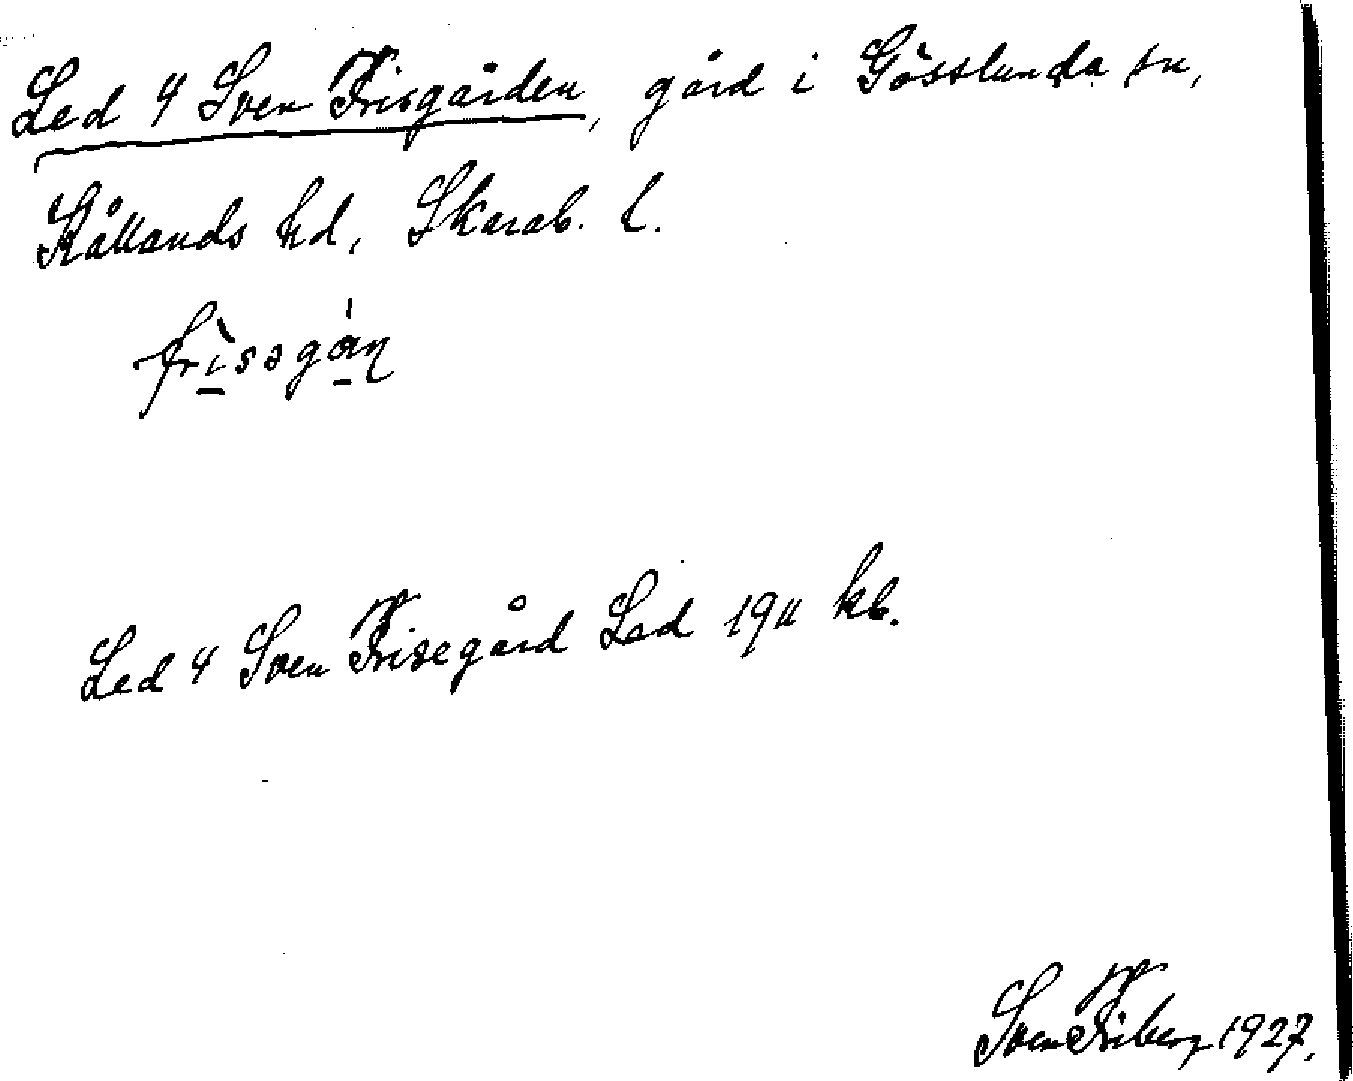 Led 4 Sven Frisgården, gård i Gösslunda sn,
Kållands hd, Skarab. l.
frìssgán
Led 4 Sven Frisegård Led 1911 kb.
Sven Friberg 1927.